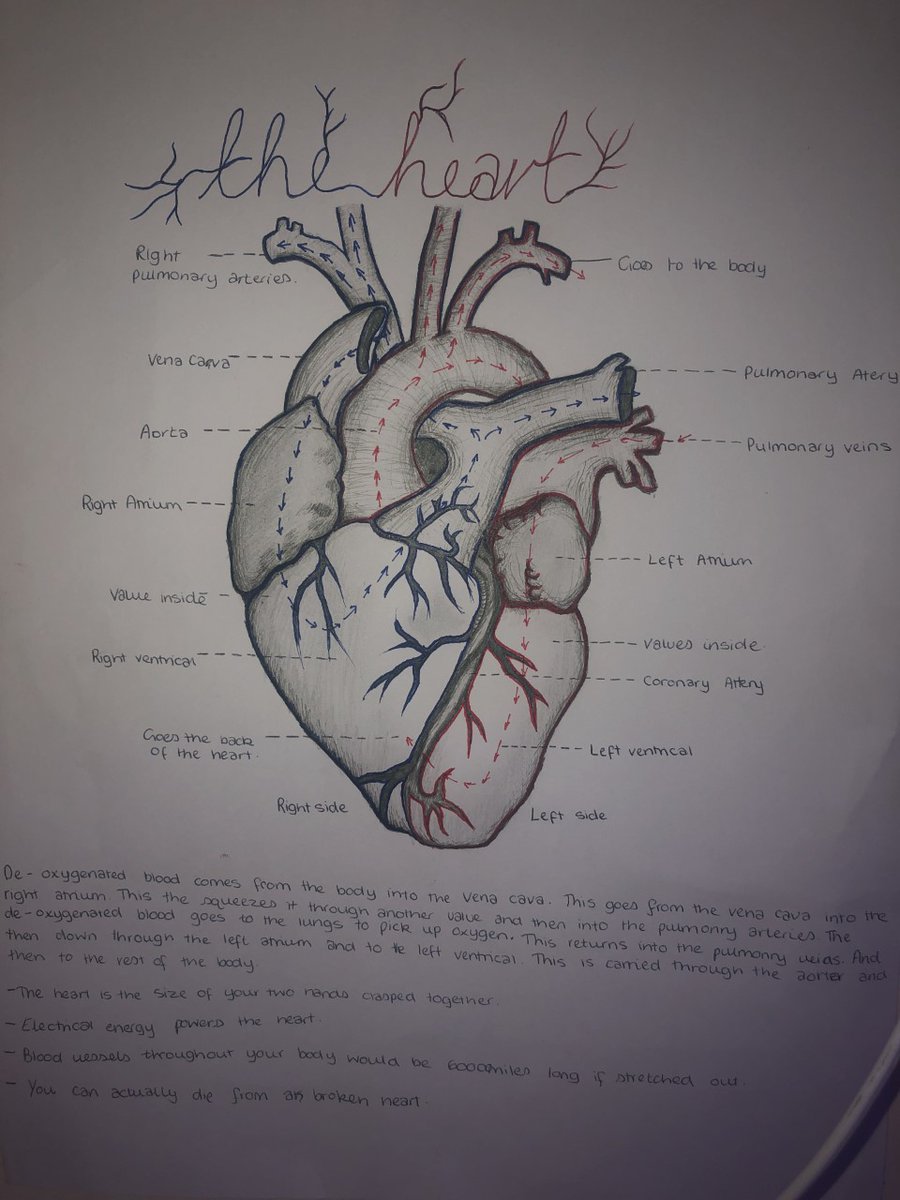 the heart
Right
pulmonary arteries.
Goes to the body
Vena Carva
Pulmonary Atery
Aorta
Pulmonary veins
Right Atrium
Left Atrium
Value inside
Values inside.
Right ventrical
Coronary Artery
Goes the back
of the heart.
Left ventrical
Right side
Left side
De-oxygenated blood comes from the body into the vena cava. This goes from the vena cava into the
right atrium. This the squeezes it through another value and then into the pulmonry arteries. The
de-oxygenated blood goes to the lungs to pick up oxygen. This returns into the pulmonry veias. And
then down through the left atrium and to te left ventrical. This is carried through the aorter and
then to the rest of the body.
-The heart is the size of your two hands crasped together.
- Electrical energy powers the heart.
- Blood vessels throughout your body would be 60000miles long if stretched out.
- You can actually die from an broken heart.